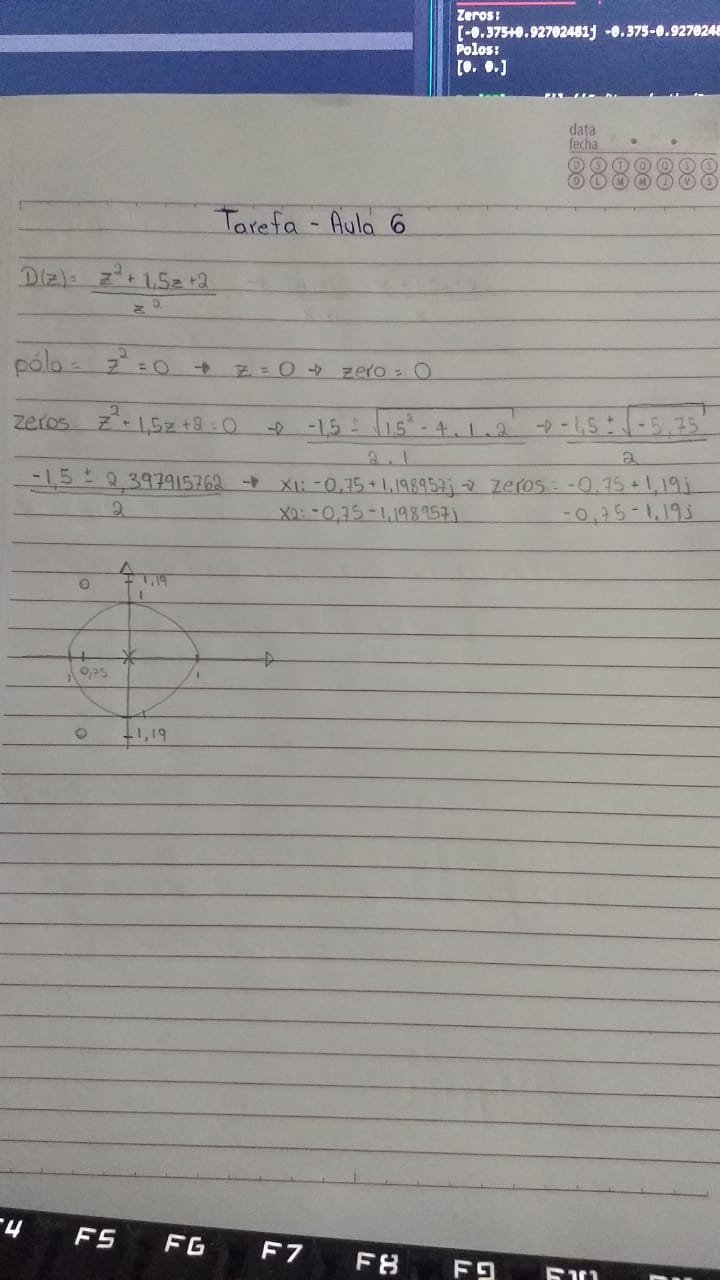 Zeros:
[-0.375+0.92702481j -0.375-0.9270248
Polos:
[0. 0.]
data
fecha
D S T Q Q S S
D L M M J V S
Tarefa - Aula 6
D(z)= z² + 1,5z +2
z²
pólo = z² = 0 → z = 0 → zero = 0
zeros z² + 1,5z + 2 = 0 → -1,5 ± √1,5² - 4 . 1 . 2 → -1,5 ± √-5,75
2 . 1 2
-1,5 ± 2,397915762 → x1: -0,75 + 1,198957j → zeros = -0,75 + 1,19j
2 x2: -0,75 - 1,198957j -0,75 - 1,19j
1,19
1
0,75
1 1
1,19
F4 F5 F6 F7 F8 F9 F10